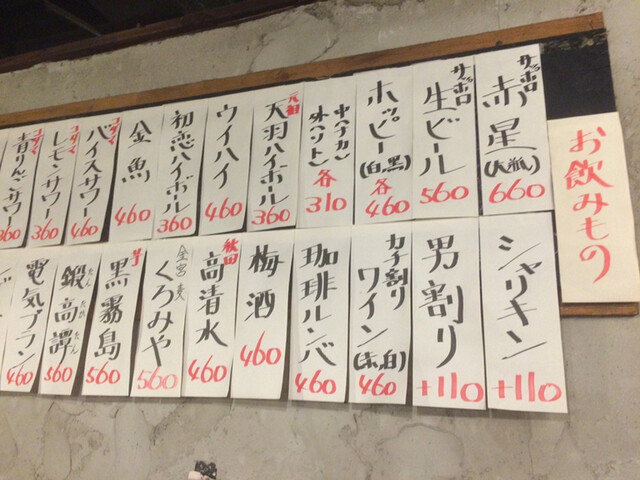 お飲みもの
サッポロ
赤星
(大瓶)
660
サッポロ
生ビール
560
ホッピー
(白,黒)
各
460
中(ナカ)
外(ソト)
各
310
元祖
天羽ハイボール
360
ウイハイ
460
初恋ハイボール
360
金魚
460
コダマ
バイスサワー
460
コダマ
レモンサワー
360
コダマ
青りんごサワー
360
シャリキン
+110
男割り
+110
カチ割り
ワイン
(赤,白)
460
珈琲ルンバ
460
梅酒
460
秋田
高清水
460
くろみや
560
黒霧島
560
鍛高譚
たんたかたん
560
電気ブラン
460